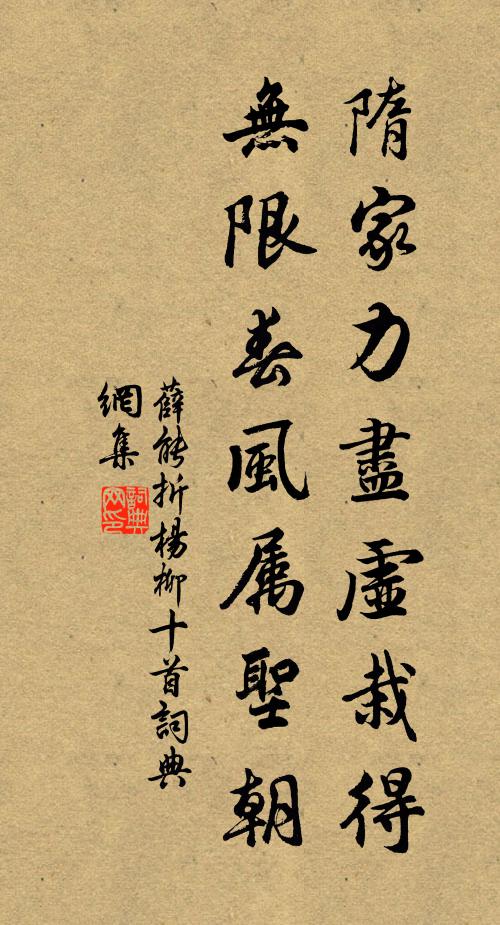 隋家力盡虛栽得
無限春風属聖朝
薛能折楊柳十首詞典
網集
詞典
网印